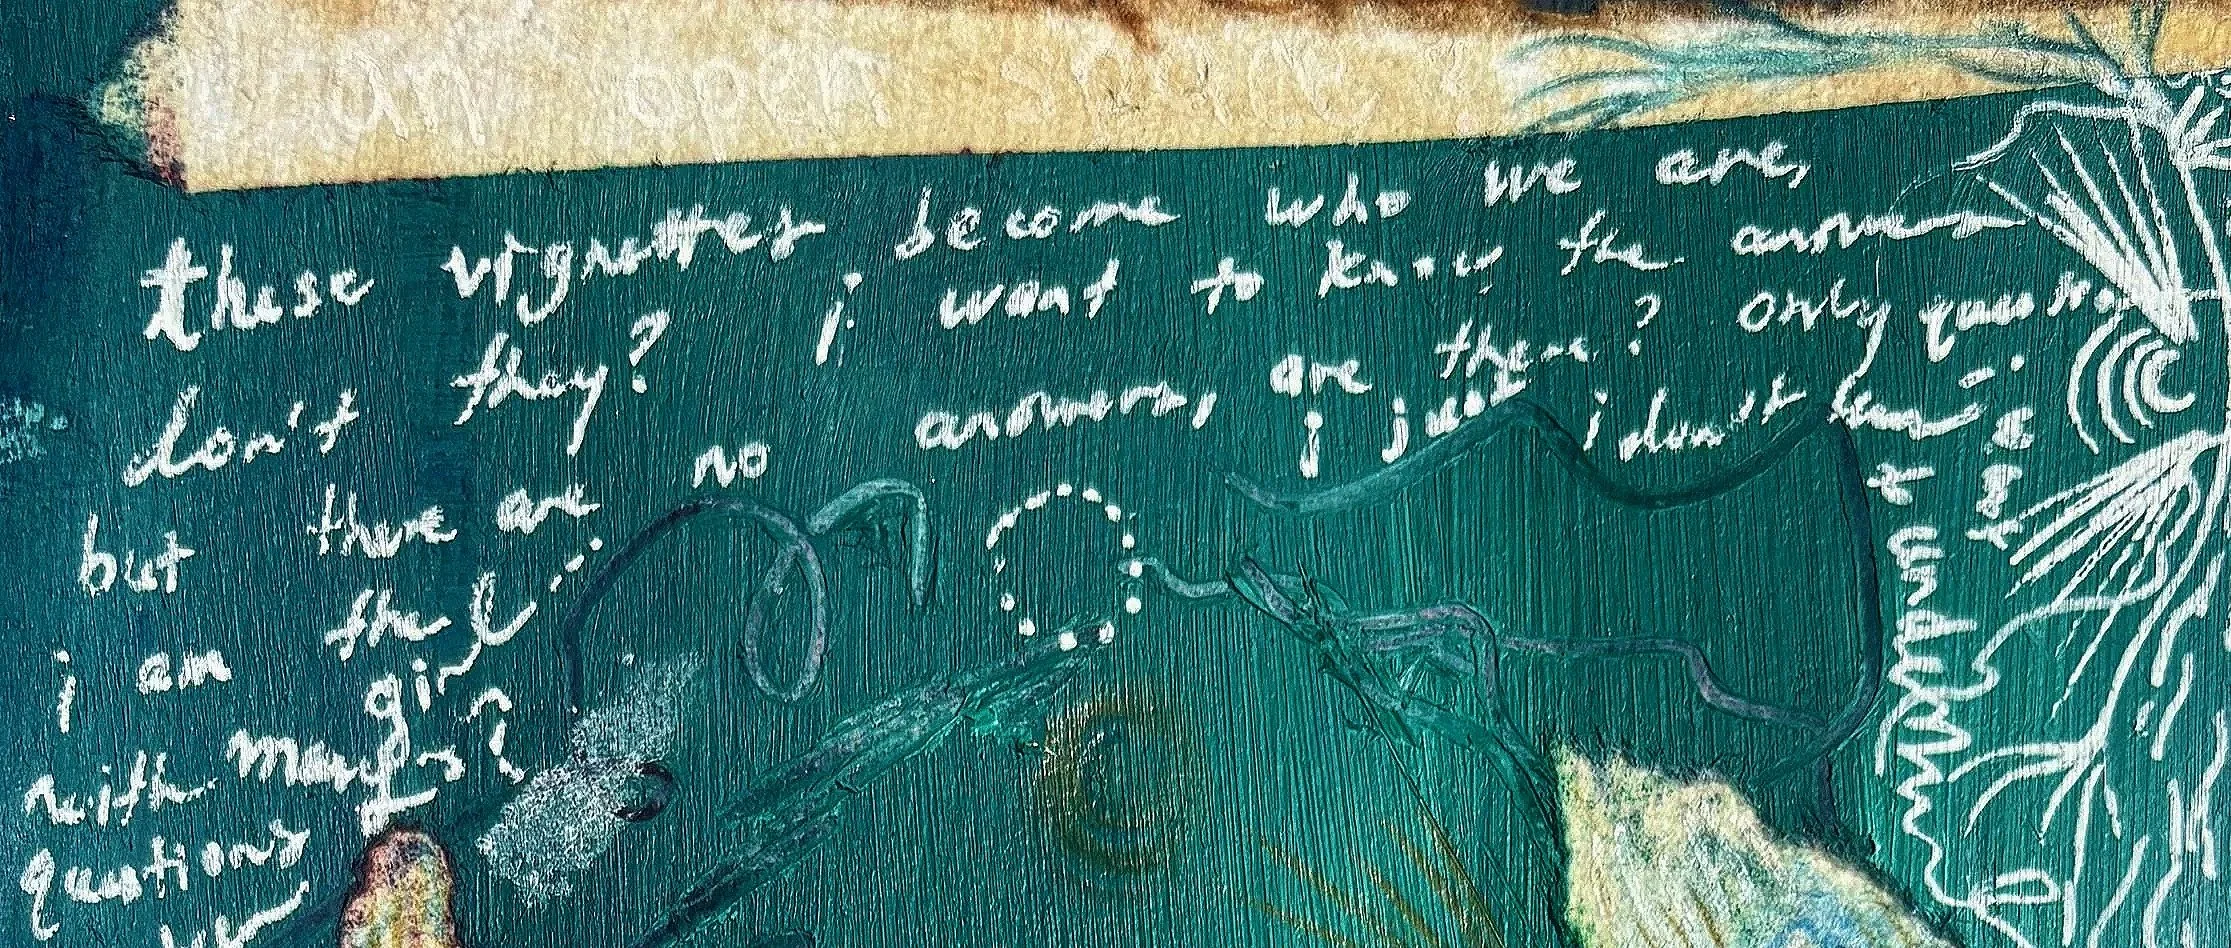 an open
these vignettes become who we are,
don't they? i want to know the answers
but there are no answers, are there? only questions
i am the girl
with many
questions
i just i don't understand